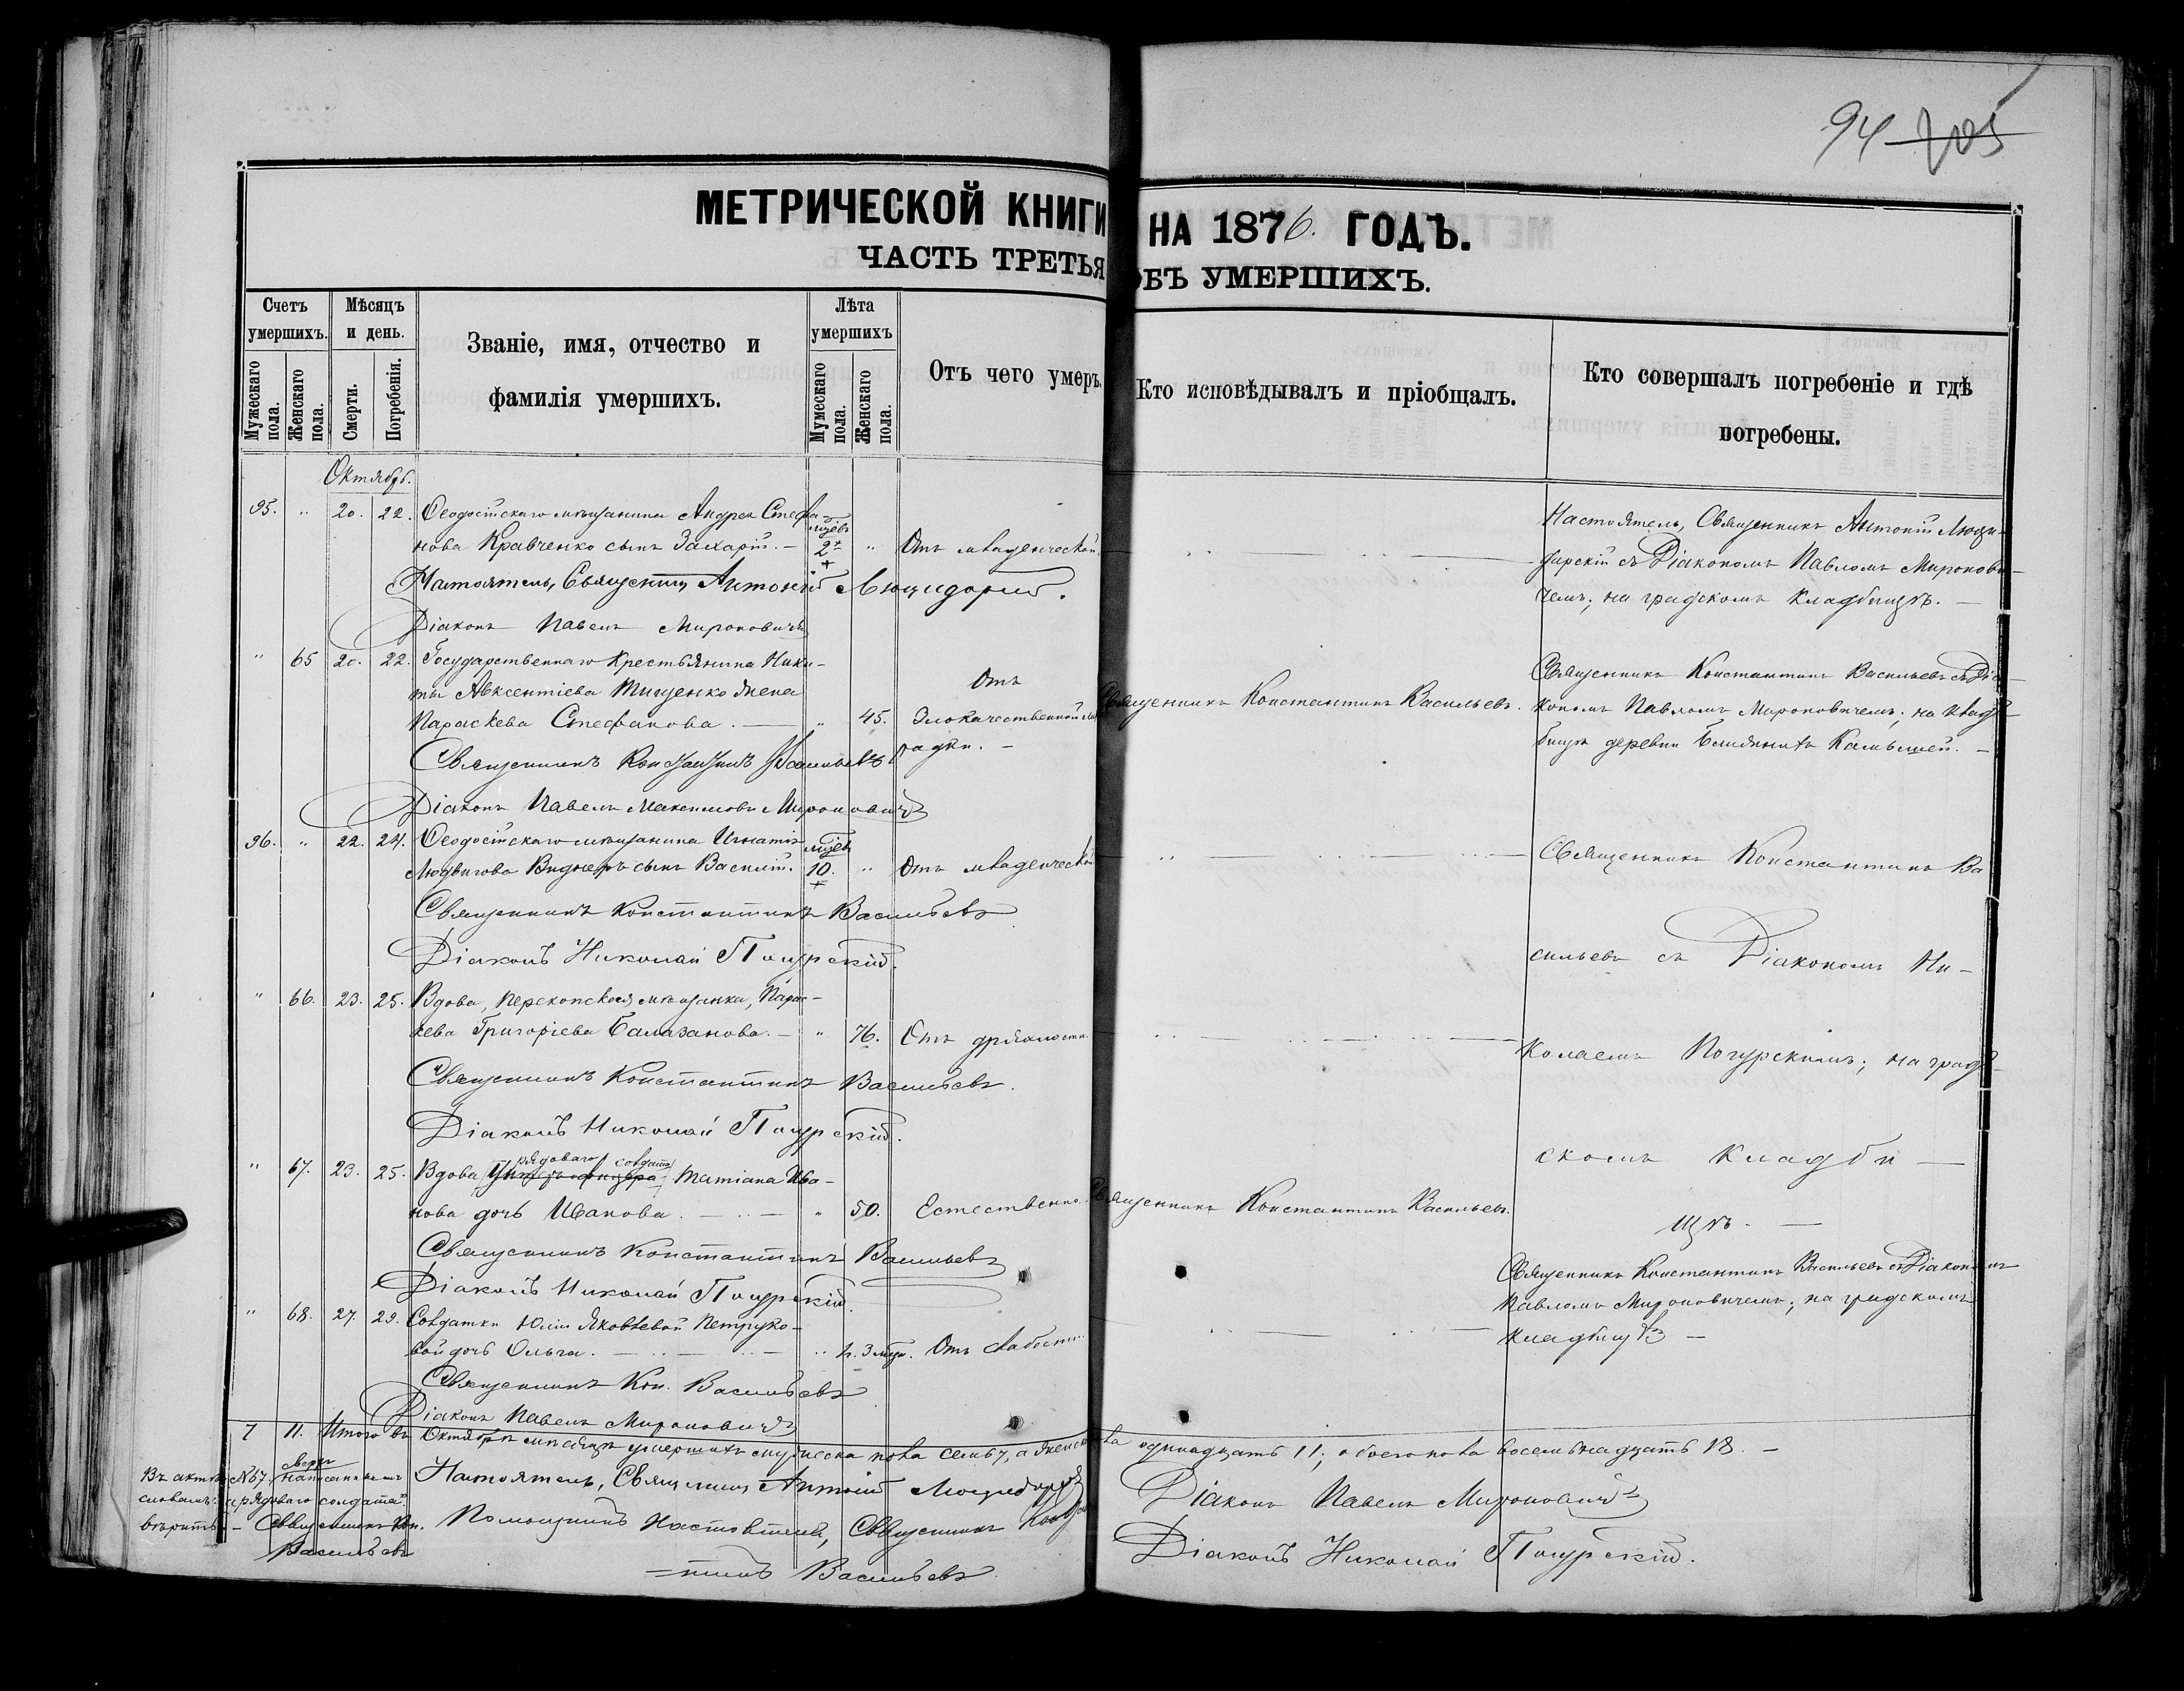 94 705
МЕТРИЧЕСКОЙ КНИГИ НА 1876. ГОДЪ.
ЧАСТЬ ТРЕТЬЯ ОБЪ УМЕРШИХЪ.
Счетъ умершихъ.
Мужескаго пола.
Женскаго пола.
Мѣсяцъ и день.
Смерти.
Погребенія.
Званіе, имя, отчество и
фамилія умершихъ.
Лѣта умершихъ
Мужескаго пола.
Женскаго пола.
Отъ чего умеръ.
Кто исповѣдывалъ и пріобщалъ.
Кто совершалъ погребеніе и гдѣ
погребены.
Октябрь.
95. " 20. 22. Ѳеодосійскаго мѣщанина Андрея Стефа-
нова Кравченко сынъ Захарій. — 2 " Отъ младенческой
Настоятель, Священникъ Антоній Люци-
дарскій съ Діакономъ Павломъ Миронови-
чемъ; на градскомъ кладбищѣ. —
Настоятель, Священникъ Антоній
Діаконъ Павелъ Мироновичъ
" 65 20. 22. Государственнаго крестьянина Ники-
ты Авксентіева Тищенко жена
Параскева Стефанова. — " 45. Отъ
злокачественной лихо-
радки. —
Священникъ Константинъ Васильевъ.
Священникъ Константинъ Васильевъ съ Діа-
кономъ Павломъ Мироновичемъ; на клад-
бищѣ деревни Ближнихъ Камышей. —
Священникъ Константинъ Васильевъ
Діаконъ Павелъ Максимовъ Мироновичъ
96. " 22. 24. Ѳеодосійскаго мѣщанина Игнатія
Людвигова Виднеръ сынъ Василій. 10. " Отъ младенческой
Священникъ Константинъ Ва-
сильевъ съ Діакономъ Ни-
колаемъ Погурскимъ; на град-
скомъ кладби —
щѣ. —
Священникъ Константинъ Васильевъ
Діаконъ Николай Погурскій.
" 66. 23. 25. Вдова, Перекопская мѣщанка, Парас-
кева Григоріева Балазанова. — " 76. Отъ дряхлости.
Священникъ Константинъ Васильевъ.
Діаконъ Николай Погурскій.
рядоваго солдата
" 67. 23. 25. Вдова унтеръ-офицера, Татіана Ива-
нова дочь Иванова. — " 50. Естественно.
Священникъ Константинъ Васильевъ.
Священникъ Константинъ Васильевъ
Діаконъ Николай Погурскій.
" 68. 27. 29. Солдатки Юліи Яковлевой Петруко-
вой дочь Ольга. — " Отъ слабости.
Священникъ Константинъ Васильевъ съ Діакономъ
Павломъ Мироновичемъ; на градскомъ
кладбищѣ —
Священникъ Кон. Васильевъ
Діаконъ Павелъ Мироновичъ
7 11. Итого въ Октябрѣ мѣсяцѣ умершихъ мужеска пола семь 7, а женска одинадцать 11; обоего пола восемьнадцать 18. —
Въ актѣ №67 сверху написаннымъ
словамъ: "рядоваго солдата"
вѣрить. — Священникъ Кон.
Васильевъ
Настоятель, Священникъ Антоній
Помощникъ Настоятеля, Священникъ Констан-
тинъ Васильевъ.
Діаконъ Павелъ Мироновичъ
Діаконъ Николай Погурскій.